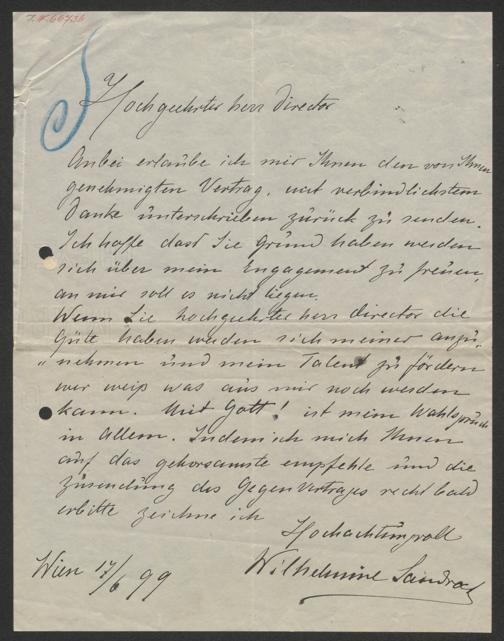 Hochgeehrter herr Director
Anbei erlaube ich mir Ihnen den von Ihnen
genehmigten Vertrag, mit verbindlichstem
Danke unterschrieben zurück zu senden.
Ich hoffe dass Sie Grund haben werden
sich über mein Engagement zu freuen,
an mir soll es nicht liegen.
Wenn Sie hochgeehrter herr Director die
Güte haben werden sich meiner anzu-
"nehmen und mein Talent zu fördern
wer weiß was aus mir noch werden
kann. Mit Gott! ist mein Wahlspruch
in Allem. Indem ich mich Ihnen
auf das gehorsamste empfehle und die
Zusendung des Gegenvertrages recht bald
erbitte zeichne ich
Hochachtungsvoll
Wien 17/6 99
Wilhelmine Sandrock